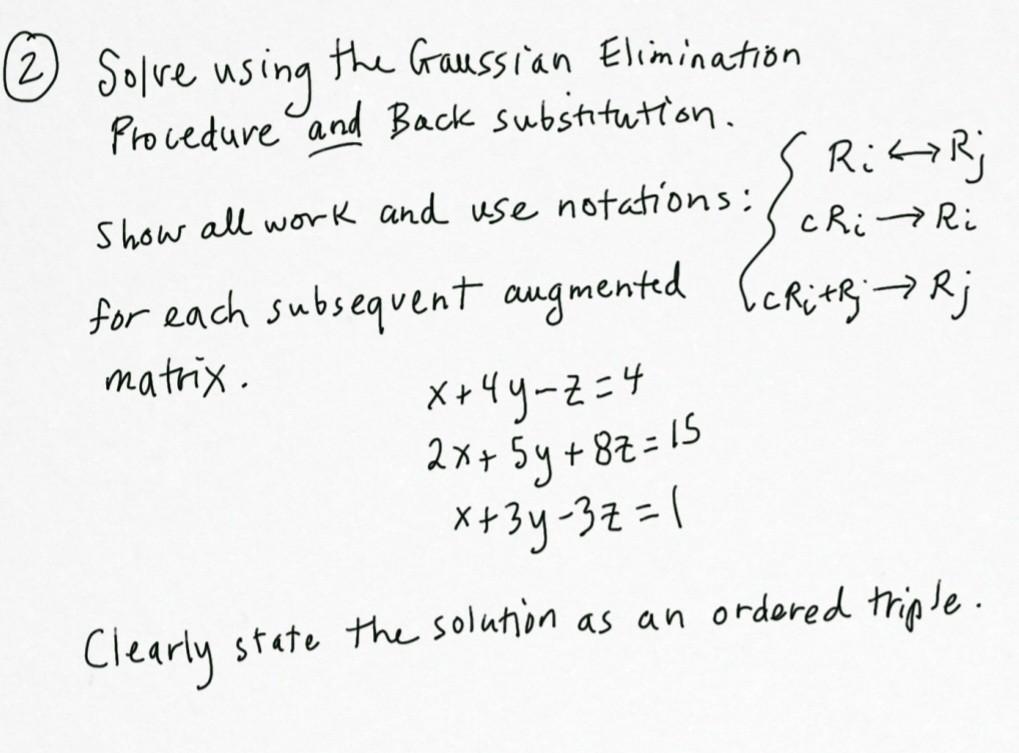 ② Solve using the Gaussian Elimination
Procedure and Back substitution.
Show all work and use notations: { Ri ↔ Rj
cRi → Ri
for each subsequent augmented cRi+Rj → Rj
matrix.
x+4y-z=4
2x+5y+8z=15
x+3y-3z=1
Clearly state the solution as an ordered triple.